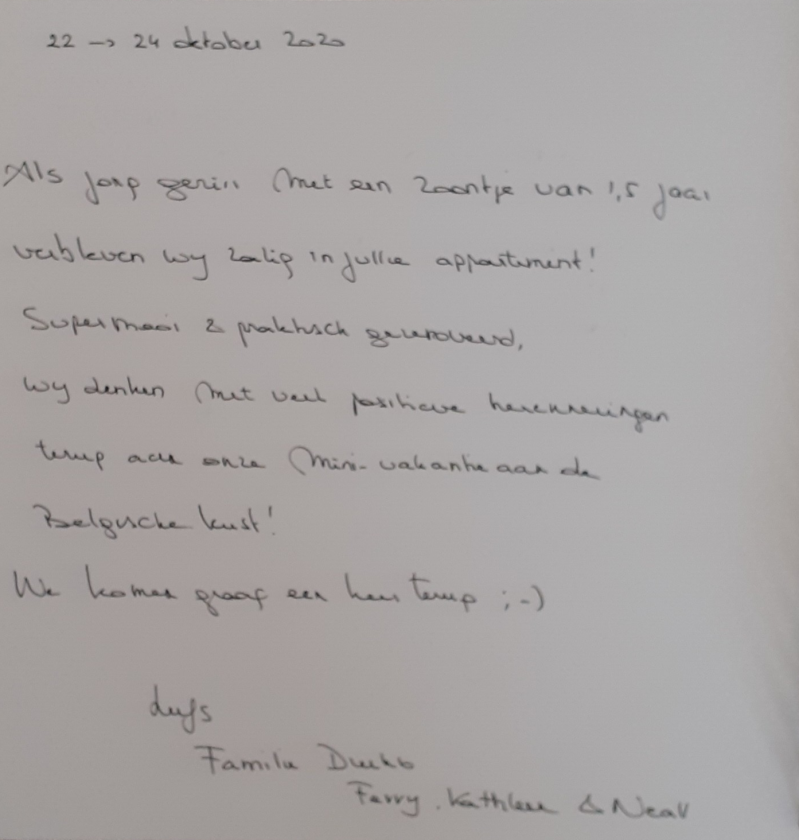 22 → 24 oktober 2020
Als jong gezin met een zoontje van 1,5 jaar
verbleven wij zalig in jullie appartement!
Supermooi & praktisch gerenoveerd,
Wij denken met veel positieve herinneringen
terug aan onze mini-vakantie aan de
Belgische kust!
We komen graag een keer terug ;-)
Liefs
Familie
Ferry, Kathleen &